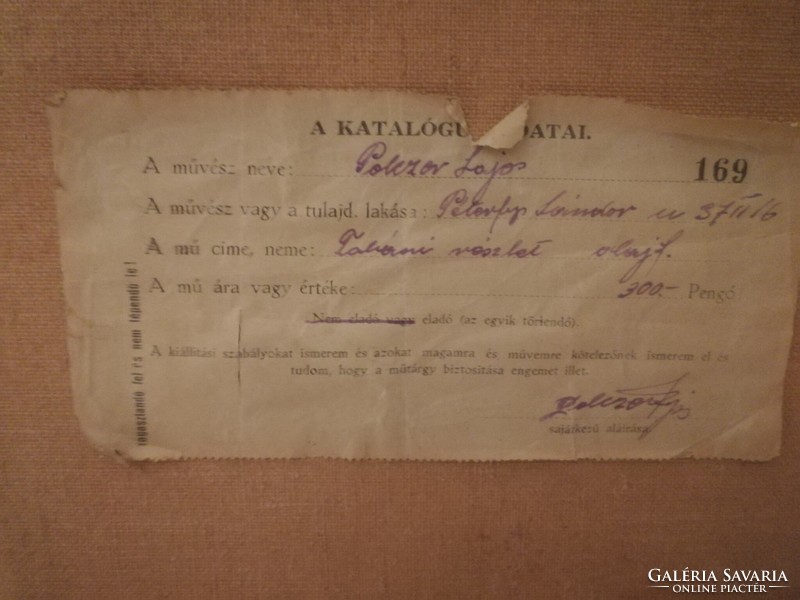 A KATALÓGU DATAI.
A művész neve: Polczer Lajos 169
A művész vagy a tulajd. lakása: Péterfy Sándor u 37 II 16
A mű címe, neme: Tabáni részlet olajf.
A mű ára vagy értéke: 300.- Pengő
Nem eladó vagy eladó (az egyik törlendő).
A kiállítási szabályokat ismerem és azokat magamra és művemre kötelezőnek ismerem el és
tudom, hogy a műtárgy biztosítása engemet illet.
Polczer Lajos
sajátkezű aláírása
ragasztandó fel és nem tépendő le!
GALÉRIA SAVARIA
ONLINE PIACTÉR